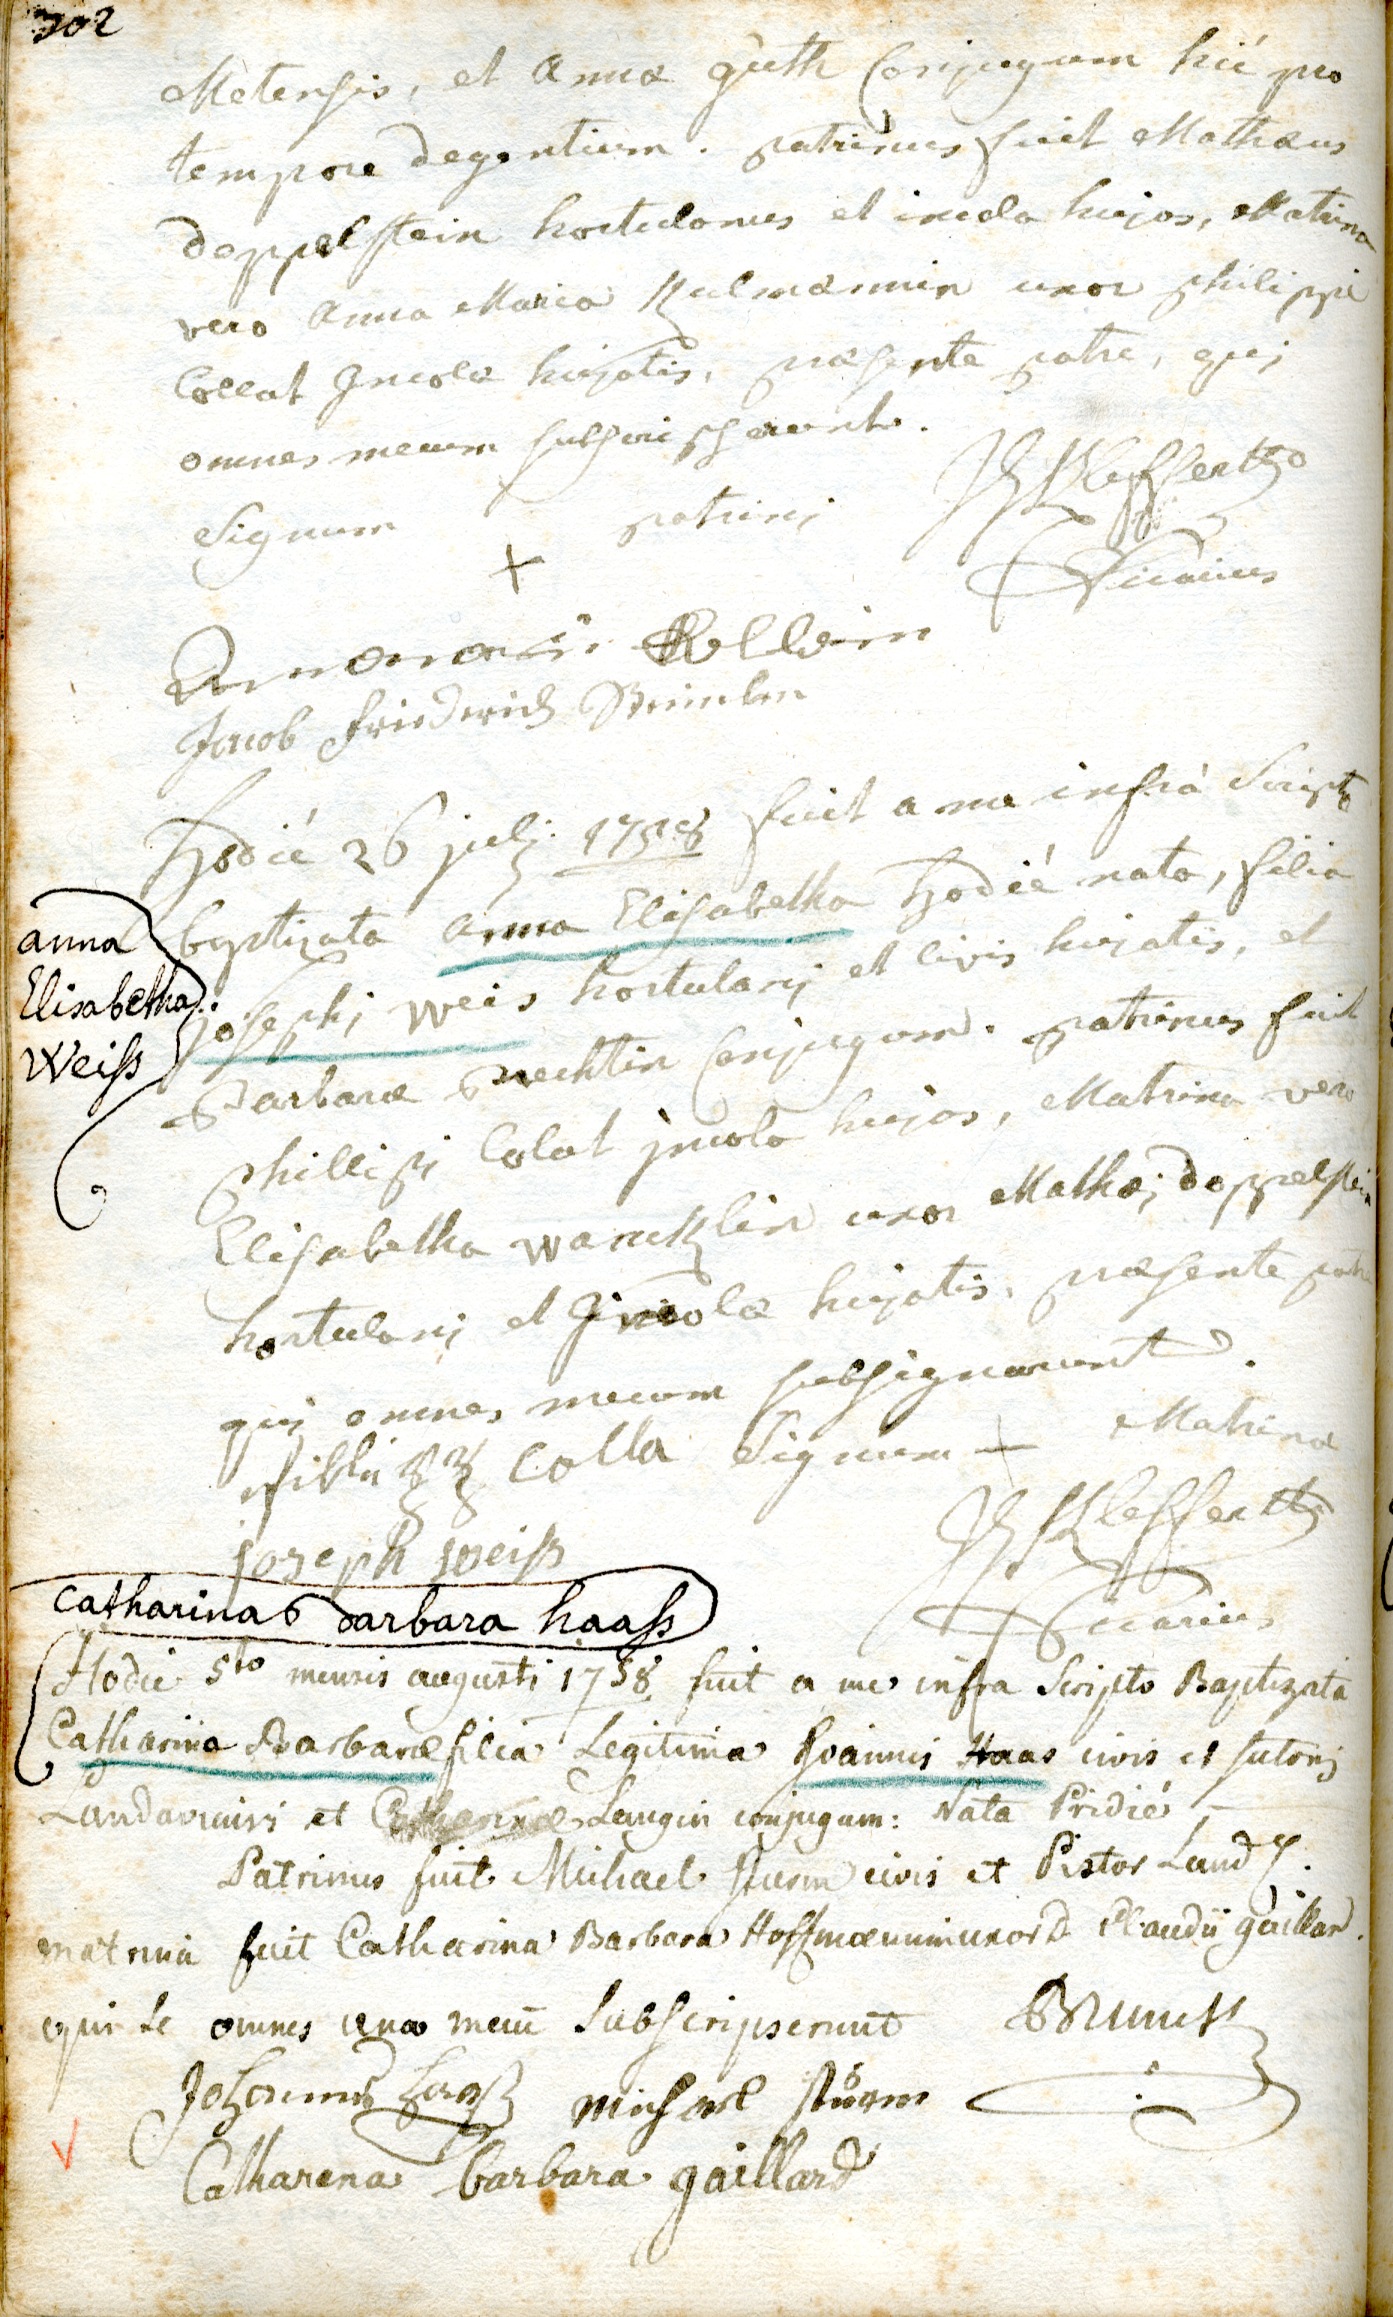 302
Metensis, et Annæ güth Conjugum hic pro
tempore degentium. patrinus fuit Mathæus
doppelstein hortulanus et incola hujas, Matrina
vero Anna Maria Kulmannin uxor philippi
Collat Incolæ hujatis, præsente patre, qui
omnes mecum subscripserunt.
Signum + patrini
Vicarius
Jacob friedrich
Hodié 26 julj 1758 fuit a me infrà Scripto
baptizata anna Elisabetha Hodié nata, filia
anna
Elisabetha
Weiss
josephj weis hortulanj et Civis hujatis, et
Barbaræ Conjugum. patrinus fuit
phillipi Colat jncola hujas, Matrina vero
Elisabetha uxor Mathæj doppelstein
hortulanj et Jncolæ hujatis, præsente patre
quj omnes mecum subsignarunt.
Colla Signum + Matrinæ
joseph weiss
Vicarius
Catharina barbara haass
Hodie 5to mensis augusti 1758 fuit a me infra Scripto Baptizata
Catharina Barbaræ filia Legitima Joannis Haas civis et sutoris
Landaviensis et Catharinæ Langin conjugum: Nata Pridié
Patrinus fuit Michael Sturm civis et Pistor Land
matrina fuit Catharina Barbara Hoffmannin uxor D. Claudii gaillard.
qui se omnes una mecū Subscripserunt
Johannes Haaß michael stürm
Catharena barbara gaillard